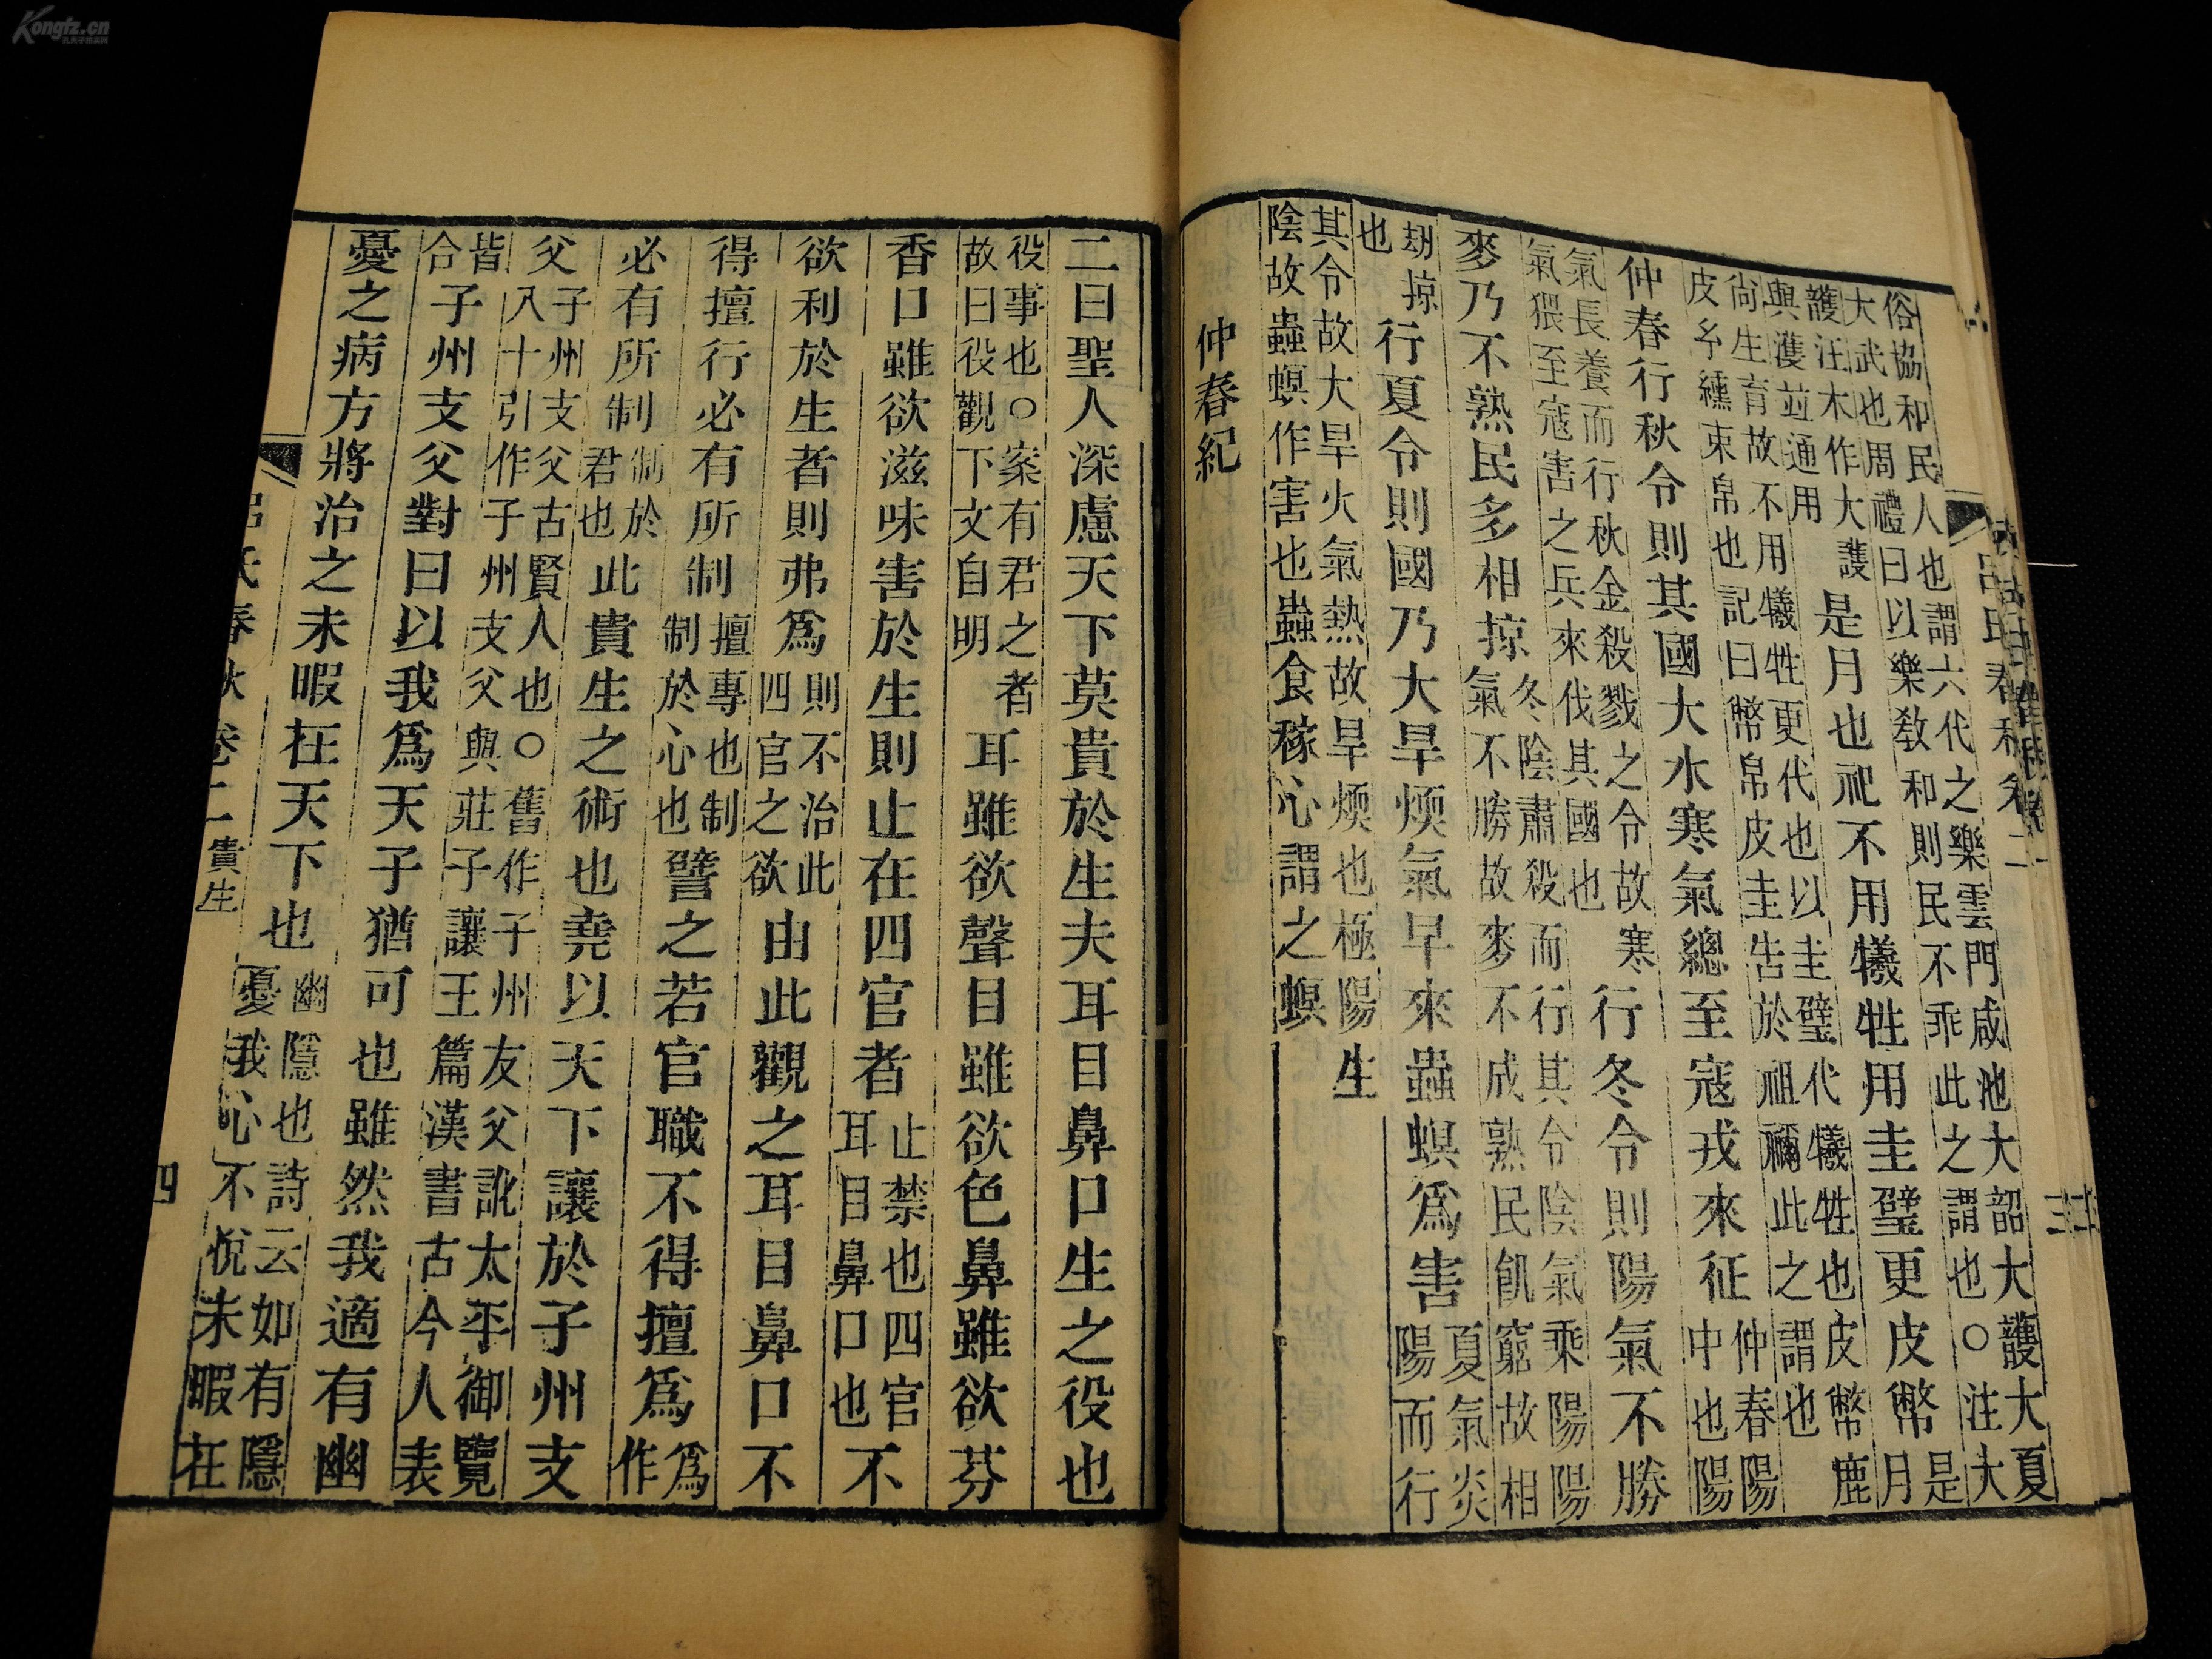 Kongfz.cn
俗協和民人也謂六代之樂雲門咸池大韶大護大夏
大武也周禮曰以樂敎和則民不乖此之謂也○注大
護汪本作大護是月也祀不用犧牲用圭璧更皮幣是
與濩並通用月
尚生育故不用犧牲更代也以圭璧代犧牲也皮幣鹿
皮幣纁束帛也記曰幣帛皮圭告於祖禰此之謂也
仲春行秋令則其國大水寒氣總至寇戎來征仲春陽
中也陽
氣長養而行秋金殺戮之令故寒
氣猥至寇害之兵來伐其國也行冬令則陽氣不勝
麥乃不熟民多相掠冬陰肅殺而行其令陰氣乘陽陽
氣不勝故麥不成熟民飢窮故相
劫掠
也行夏令則國乃大旱煗氣早來蟲螟爲害夏氣炎
陽而行
其令故大旱火氣熱故旱煗也極陽生
陰故蟲螟作害也蟲食稼心謂之螟
仲春紀
二曰聖人深慮天下莫貴於生夫耳目鼻口生之役也
役事也○案有君之者
故曰役觀下文自明耳雖欲聲目雖欲色鼻雖欲芬
香口雖欲滋味害於生則止在四官者止禁也四官
耳目鼻口也不
欲利於生者則弗爲則不治此
四官之欲由此觀之耳目鼻口不
得擅行必有所制擅專也制
制於心也譬之若官職不得擅爲爲
作
必有所制制於
君也此貴生之術也堯以天下讓於子州支
父子州支父古賢人也○舊作子州友父訛太平御覽
八十引作子州支父與莊子讓王篇漢書古今人表
皆
合子州支父對曰以我爲天子猶可也雖然我適有幽
憂之病方將治之未暇在天下也幽隱也詩云如有隱
憂我心不悅未暇在
呂氏春秋卷二
貴生
四